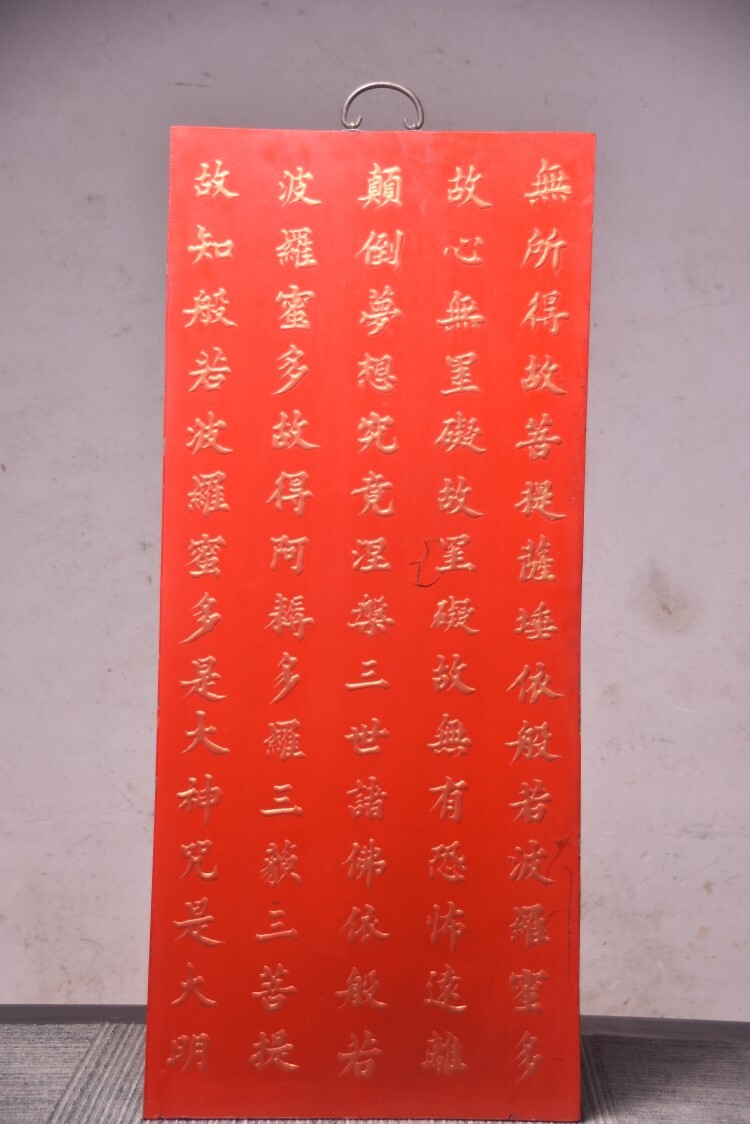 無所得故菩提薩埵依般若波羅蜜多
故心無罣礙故罣礙故無有恐怖遠離
顛倒夢想究竟涅槃三世諸佛依般若
波羅蜜多故得阿耨多羅三藐三菩提
故知般若波羅蜜多是大神咒是大明